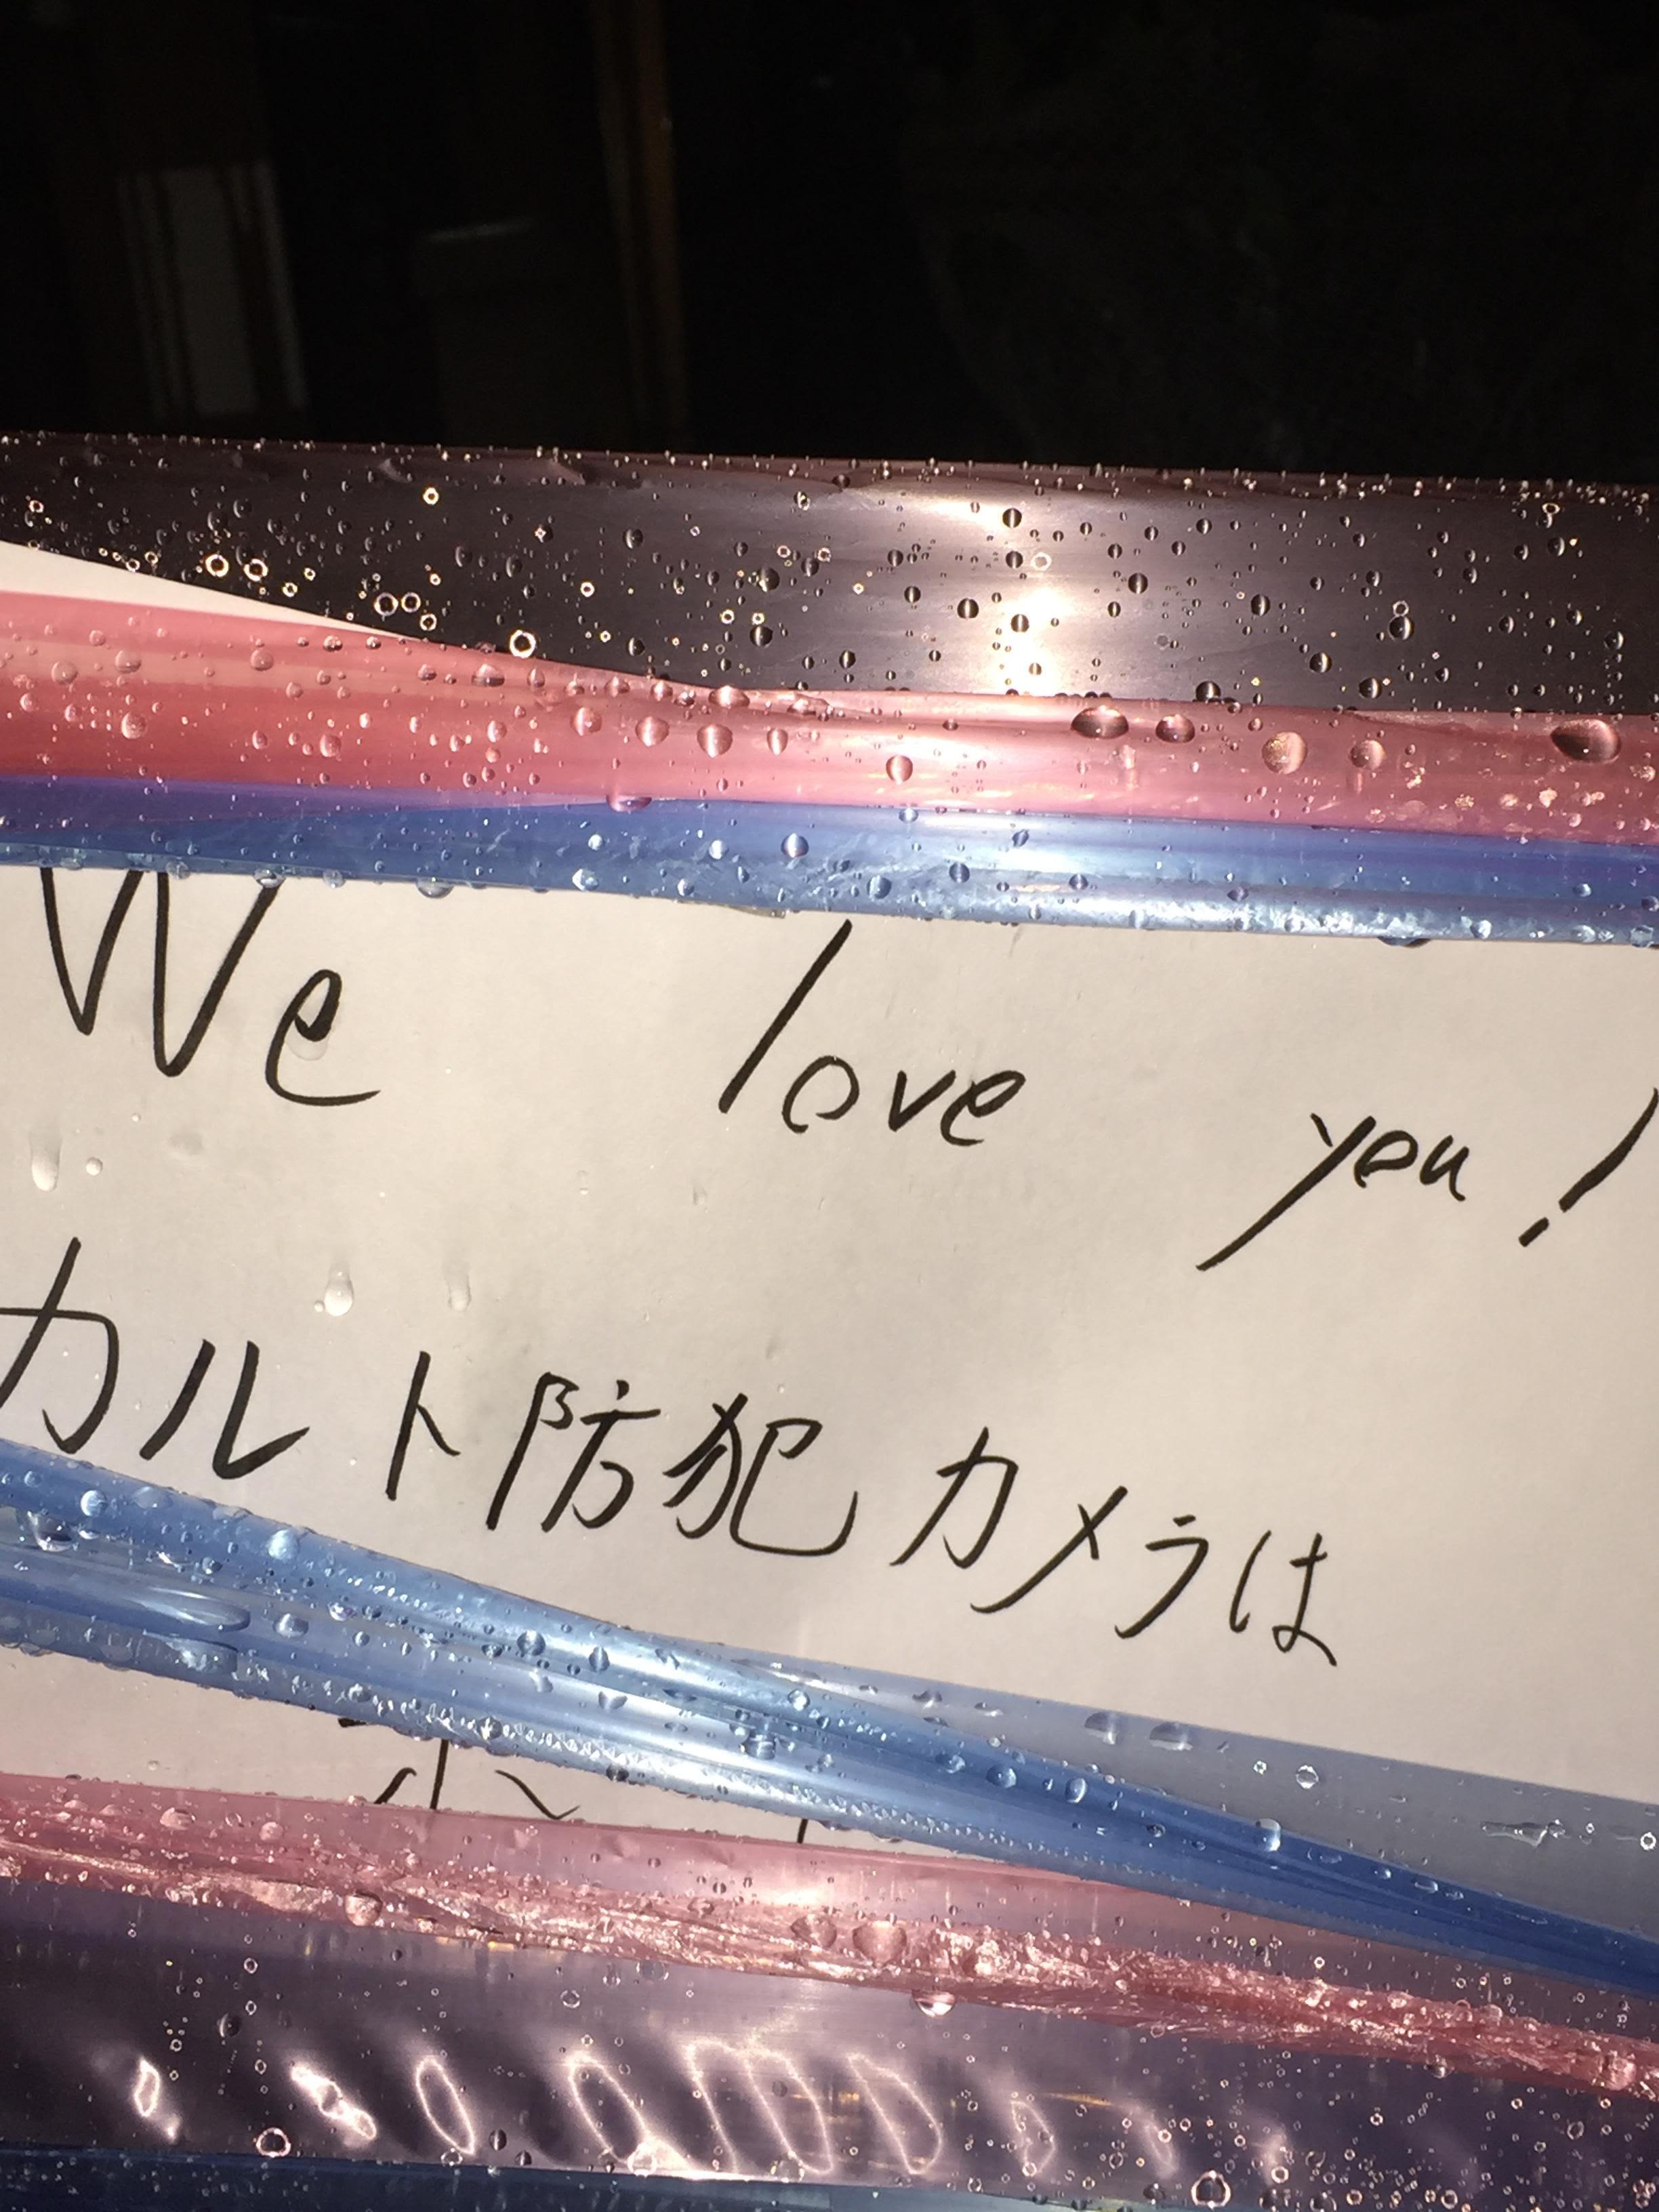 We love you!
カルト防犯カメラは